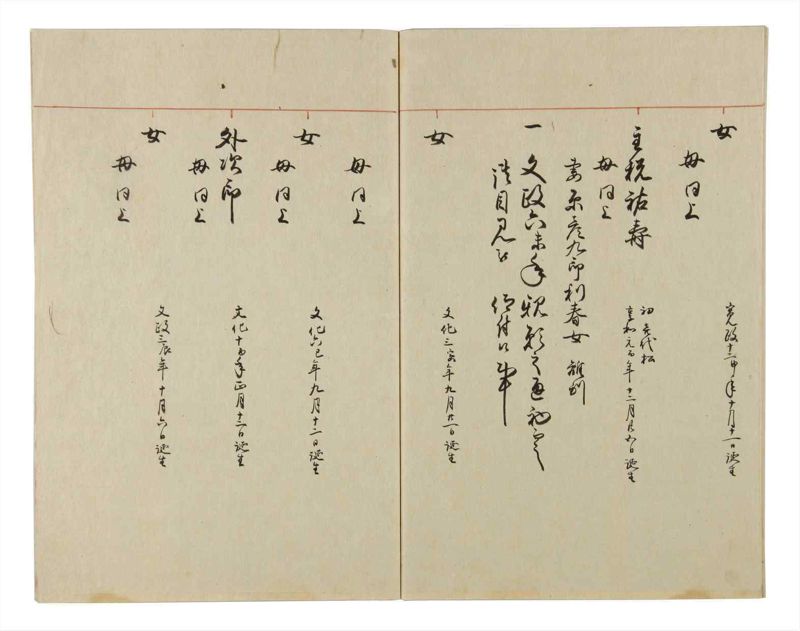 女
母同上
寛政十二申年十月十一日誕生
主税祐寿
母同上
初 代松
享和元酉年十二月 日誕生
妻 彦九郎利春女 離別
一 文政六未年 願之通初而
御目見被 仰付候事
女
文化三寅年九月廿一日誕生
母同上
女
母同上
文化六巳年九月十二日誕生
外次郎
母同上
文化十 年正月十二日誕生
女
母同上
文政三辰年十月六日誕生